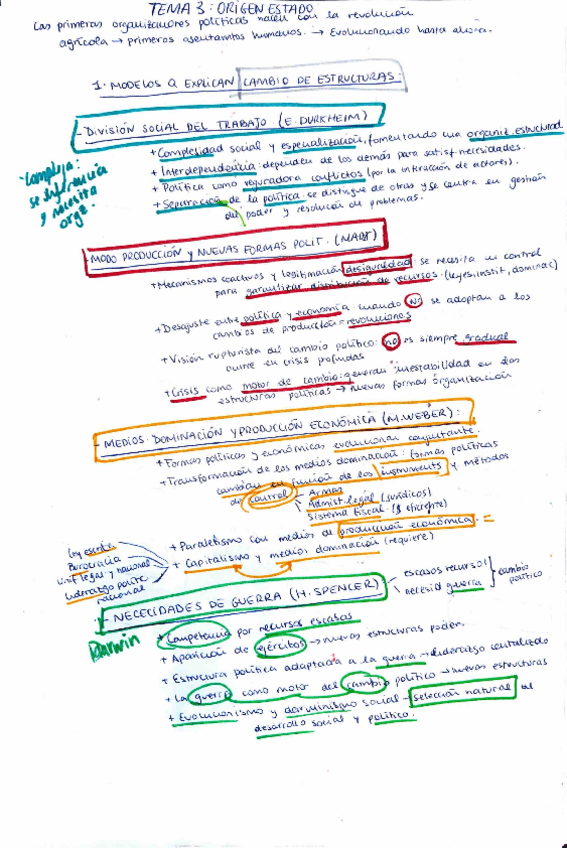 TEMA 3: ORIGEN ESTADO
Las primeras organizaciones políticas nacen con la revolución
agrícola → primeros asentamtos humanos. → Evolucionando hasta ahora.
1. MODELOS Q EXPLICAN CAMBIO DE ESTRUCTURAS:
- DIVISIÓN SOCIAL DEL TRABAJO (E. DURKHEIM)
+ Complejidad social y especialización, fomentando una organiz. estructurad
+ Interdependencia: dependen de los demás para satisf necesidades.
+ Política como reguradora conflictos (por la intracción de actores).
+ Separación de la política: se distingue de otras y se centra en gestión
del poder y resolución de problemas.
- Compleja:
se
y necesita
orgz
MODO PRODUCCIÓN Y NUEVAS FORMAS POLIT. (MARX)
+ Mecanismos coactivos y legitimación desigualdad: se necesita un control
para garantizar distribución de recursos. (leyes, instit, dominac)
+ Desajuste entre política y economía cuando no se adaptan a los
cambios de producción = revoluciones
+ Visión rupturista del cambio político: no es siempre gradual
ocurre en crisis profundas
+ Crisis como motor de cambio: generan inestabilidad en las
estructuras políticas → nuevas formas organización
MEDIOS DOMINACIÓN Y PRODUCCIÓN ECONÓMICA (M. WEBER):
+ Formas políticas y económicas evolucionan conjuntante.
+ Transformación de los medios dominación: formas políticas
cambian en función de los instruments y métodos
de control
- Armas
- Admist. legal (jurídicos)
- Sistema fiscal
+ Paralelismo con medios de producción económica: =
+ Capitalismo y medios dominación (requiere)
Ley escrita
Burocracia
Unif legal y nacional
Liderazgo polite
nacional
- NECECIDADES DE GUERRA (H. SPENCER)
escasos recursos
necesid guerra
cambio
político
Darwin
+ Competencia por recursos escasos
+ Aparición de ejércitos → nuevas estructuras poder.
+ Estructura política adaptada a la guerra → liderazgo centralizado
+ La guerra como motor del cambio político → nuevas estructuras
+ Evolucionismo y darwinismo social → selección natural al
desarrollo social y político.